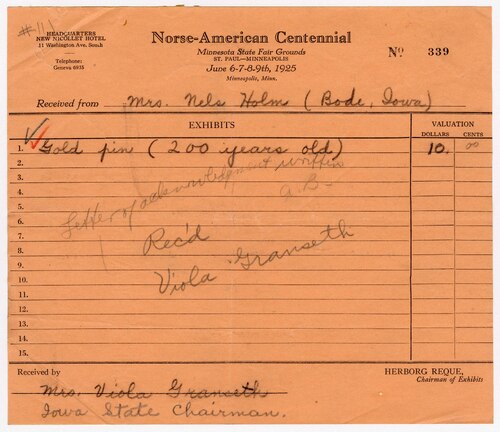 #111
HEADQUARTERS
NEW NICOLLET HOTEL
11 Washington Ave. South
Telephone:
Geneva 6935
Norse-American Centennial
Minnesota State Fair Grounds
ST. PAUL—MINNEAPOLIS
June 6-7-8-9th, 1925
Minneapolis, Minn.
No 339
Received from Mrs. Nels Holm (Bode, Iowa)
EXHIBITS
VALUATION
DOLLARS CENTS
1. Gold pin (200 years old) 10. 00
2.
3.
Letter of acknowledgment written
4.
A.B-
5.
6.
7.
Rec'd
8.
9.
Viola Granseth
10.
11.
12.
13.
14.
15.
Received by
HERBORG REQUE,
Chairman of Exhibits
Mrs. Viola Granseth
Iowa State Chairman.